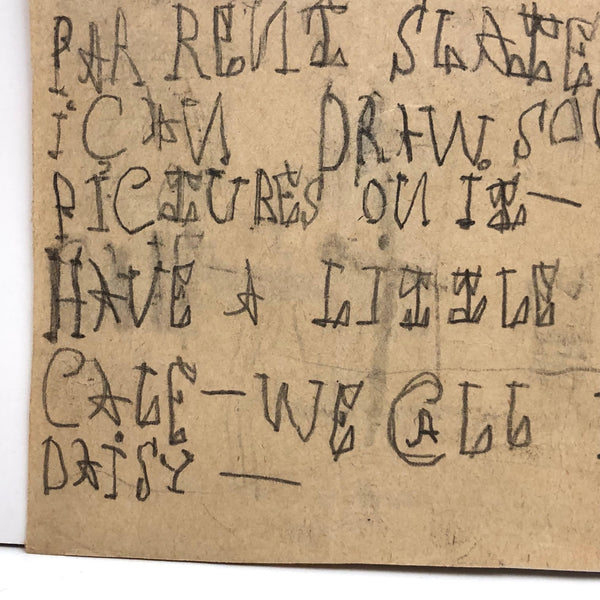 PAR RENT SLATE
I CAN DRAW.
PICTURES ON IT —
HAVE A LITTLE
CALE — WE CALL
DAISY —